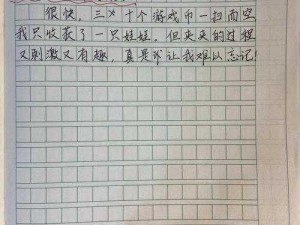 很快，三十个游戏币一扫而空
我只收获了一只娃娃。但夹夹的过程
又刺激又有趣，真是让我难以忘记！